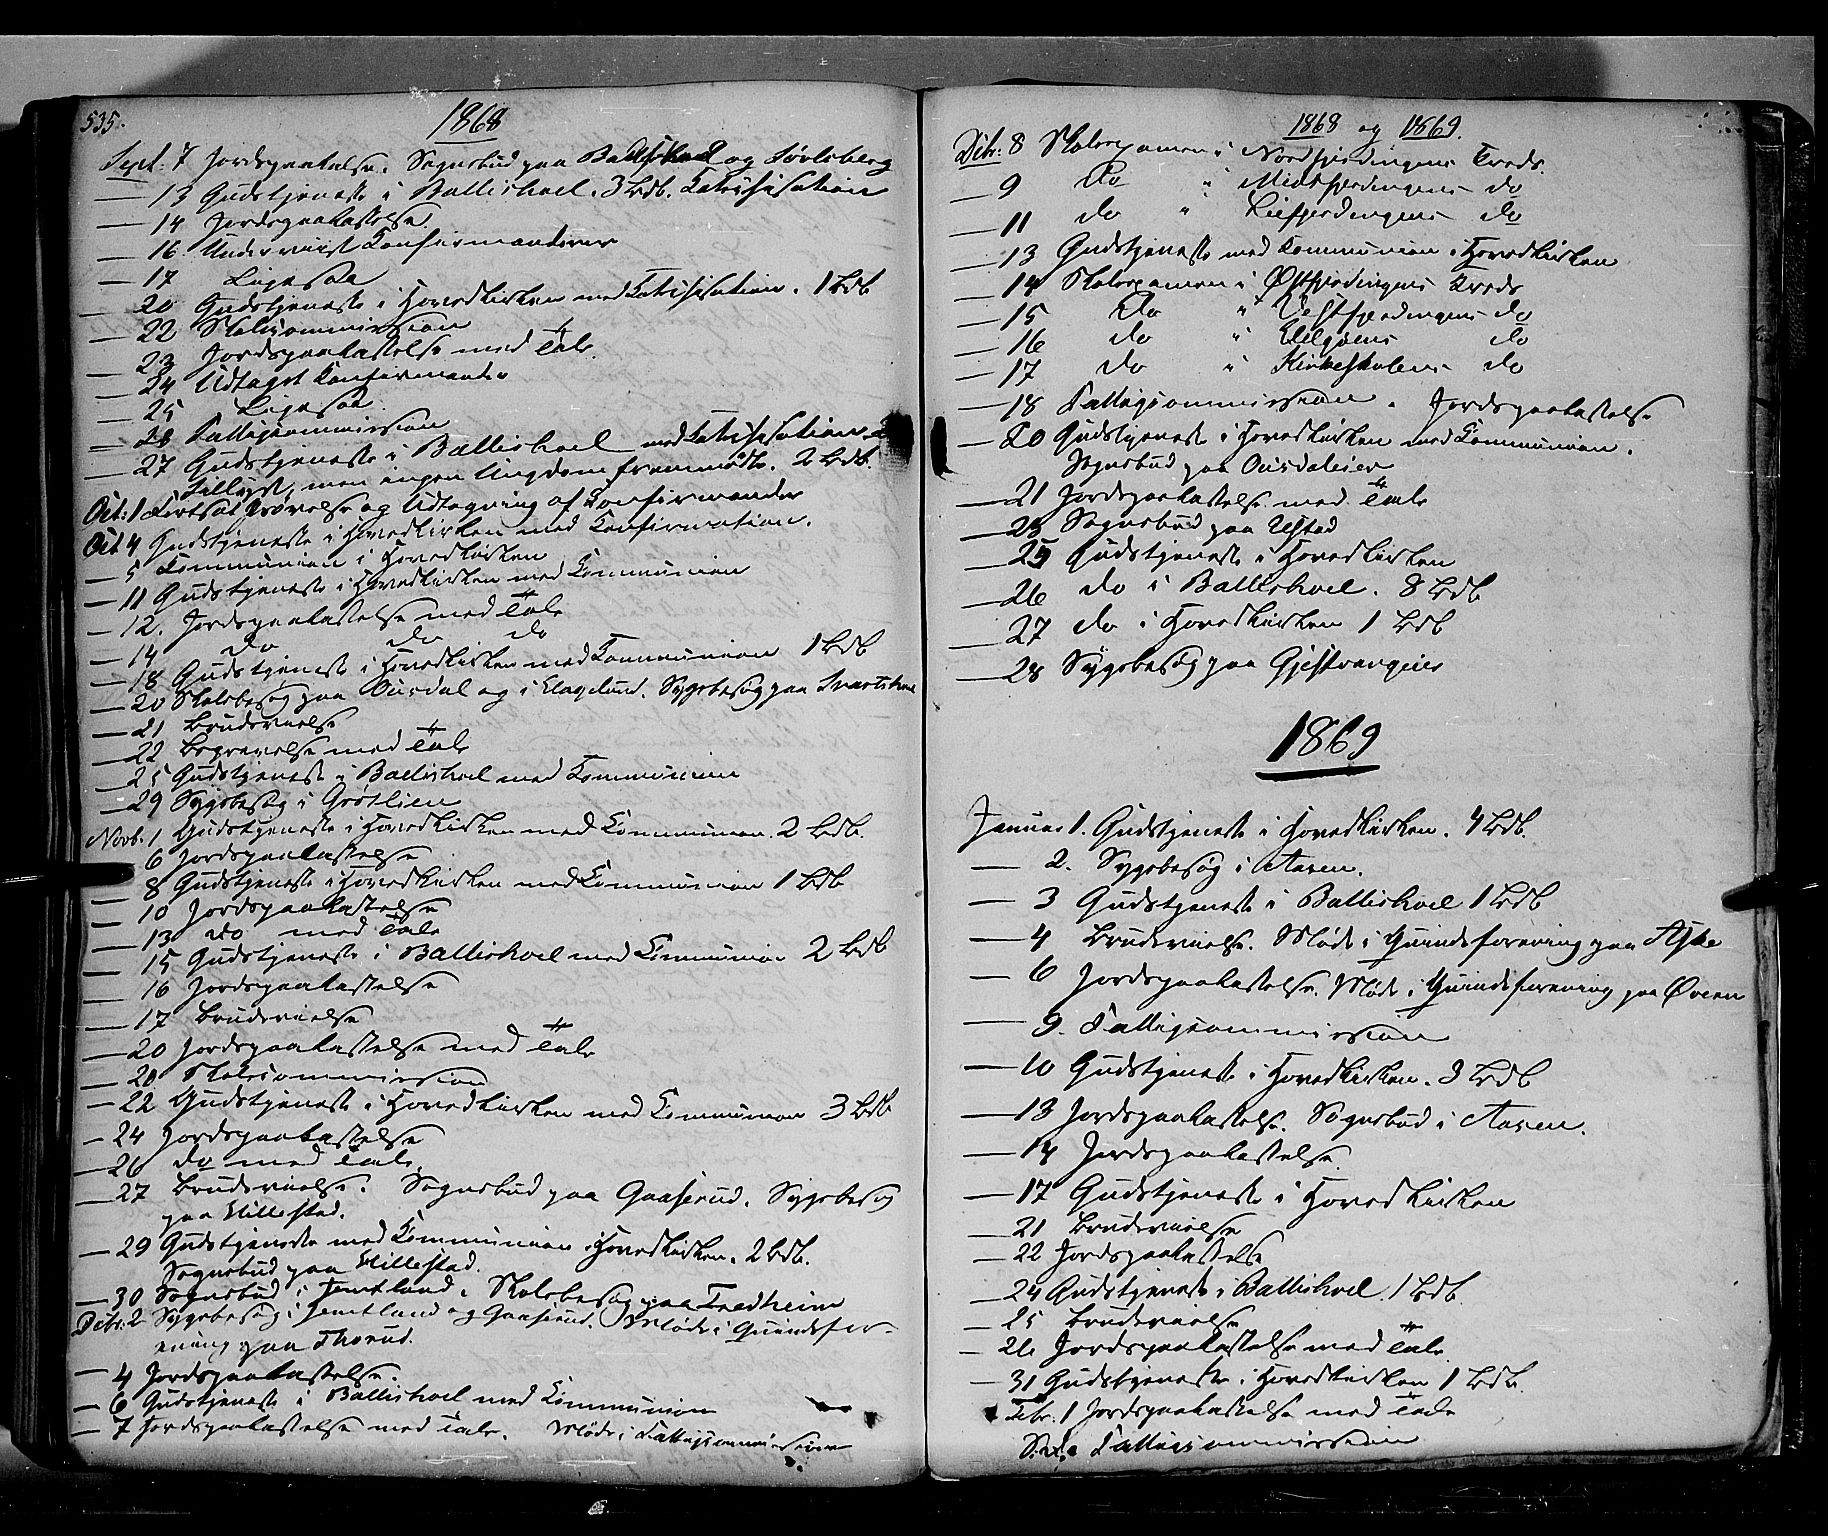 535.
1868
Sept. 7 Jordspaakastelse. Sognebud paa Ballishoel og Sövlsberg
— 13 Gudstjeneste i Ballishoel. 3 Bdb. Katechisation
— 14 Jordspaakastelse.
— 16 Underviist Konfirmanderne
— 17 Ligesaa
— 20 Gudstjeneste i Hovedkirken med Katechisation. 1 Bdb
— 22 Skolecommission
— 23 Jordspaakastelse med Tale
— 24 Udtaget Konfirmander
— 25 Ligesaa.
— 26 Fattigcommission
— 27 Gudstjeneste i Ballishoel med Katechisation
tillyst, men ingen Ungdom fremmødte. 2 Bdb.
Oct: 1 Fortsat Prøvelse og Udtagning af Konfirmander
Oct 4 Gudstjeneste i Hovedkirken med Confirmation.
— 5 Communion i Hovedkirken
— 11 Gudstjeneste i Hovedkirken med Communion
— 12. Jordspaakastelse med Tale
— 14 do do do
— 18 Gudstjeneste i Hovedkirken med Communion 1 Bdb
— 20 Skolebesøg paa Ousdal og i Haglund. Sygebesøg paa
— 21 Brudevielse
— 22 Begravelse med Tale
— 25 Gudstjeneste i Ballishoel med Communion
— 29 Sygebesøg i Grøtlien
Novb. 1 Gudstjeneste i Hovedkirken med Communion. 2 Bdb.
6 Jordspaakastelse
8 Gudstjeneste i Hovedkirken med Communion 1 Bdb
— 10 Jordspaakastelse
— 13 do med Tale
— 15 Gudstjeneste i Ballishoel med Communion 2 Bdb
— 16 Jordspaakastelse
— 17 Brudevielse
— 20 Jordspaakastelse med Tale
— 20 Skolecommission
— 22 Gudstjeneste i Hovedkirken med Communion 3 Bdb
— 24 Jordspaakastelse
— 26 do med Tale
— 27 Brudevielse. Sognebud paa Gaaserud. Sygebesøg
paa Hillestad.
— 29 Gudstjeneste med Communion i Hovedkirken. 2 Bdb.
Sognebud paa Hillestad.
— 30 Sognebud i Jemtland. Skolebesøg paa Fredheim
Dcbr. 2 Sygebesøg i Jemtland og Gaaserud. Møde i Quindefor-
ening paa Thorud.
— 4 Jordspaakastelse.
— 6 Gudstjeneste i Ballishoel med Communion
— 7 Jordspaakastelse med Tale. Møde i Fattigcommissionen
1868 og 1869.
Dcbr. 8 Skoleexamen i Nordfjerdingens Kreds.
— 9 Do " Midtfjerdingens do
— 11 do " Liefjerdingens do
— 13 Gudstjeneste med Communion i Hovedkirken
— 14 Skoleexamen i Østfjerdingens Kreds
— 15 Do " Vestfjerdingens do
— 16 do " do
— 17 do " Kirkeskolens do
— 18 Fattigcommission. Jordspaakastelse
— 20 Gudstjeneste i Hovedkirken med Communion.
Sognebud paa Ousdaleier
— 21 Jordspaakastelse med Tale
— 23 Sognebud paa Ulstad
— 25 Gudstjeneste i Hovedkirken
— 26 do i Ballishoel. 8 Bdb
— 27 do i Hovedkirken 1 Bdb
— 28 Sygebesøg paa Gjestvangeier
1869
Januar 1. Gudstjeneste i Hovedkirken. 4 Bdb.
— 2. Sygebesøg i Aasen.
— 3 Gudstjeneste i Ballishoel 1 Bdb
— 4 Brudevielse. Møde i Quindeforening paa Aske
— 6 Jordspaakastelse. Møde i Quindeforening paa Øveren
— 9. Fattigcommission
— 10 Gudstjeneste i Hovedkirken. 3 Bdb
— 13 Jordspaakastelse. Sognebud i Aasen.
— 14 Jordspaakastelse
— 17 Gudstjeneste i Hovedkirken
— 21 Brudevielse
— 22 Jordspaakastelse
— 24 Gudstjeneste i Ballishoel. 1 Bdb.
— 25 Brudevielse
— 26 Jordspaakastelse med Tale
— 31 Gudstjeneste i Hovedkirken 1 Bdb.
Febr. 1 Jordspaakastelse med Tale
S. D. Fattigcommission